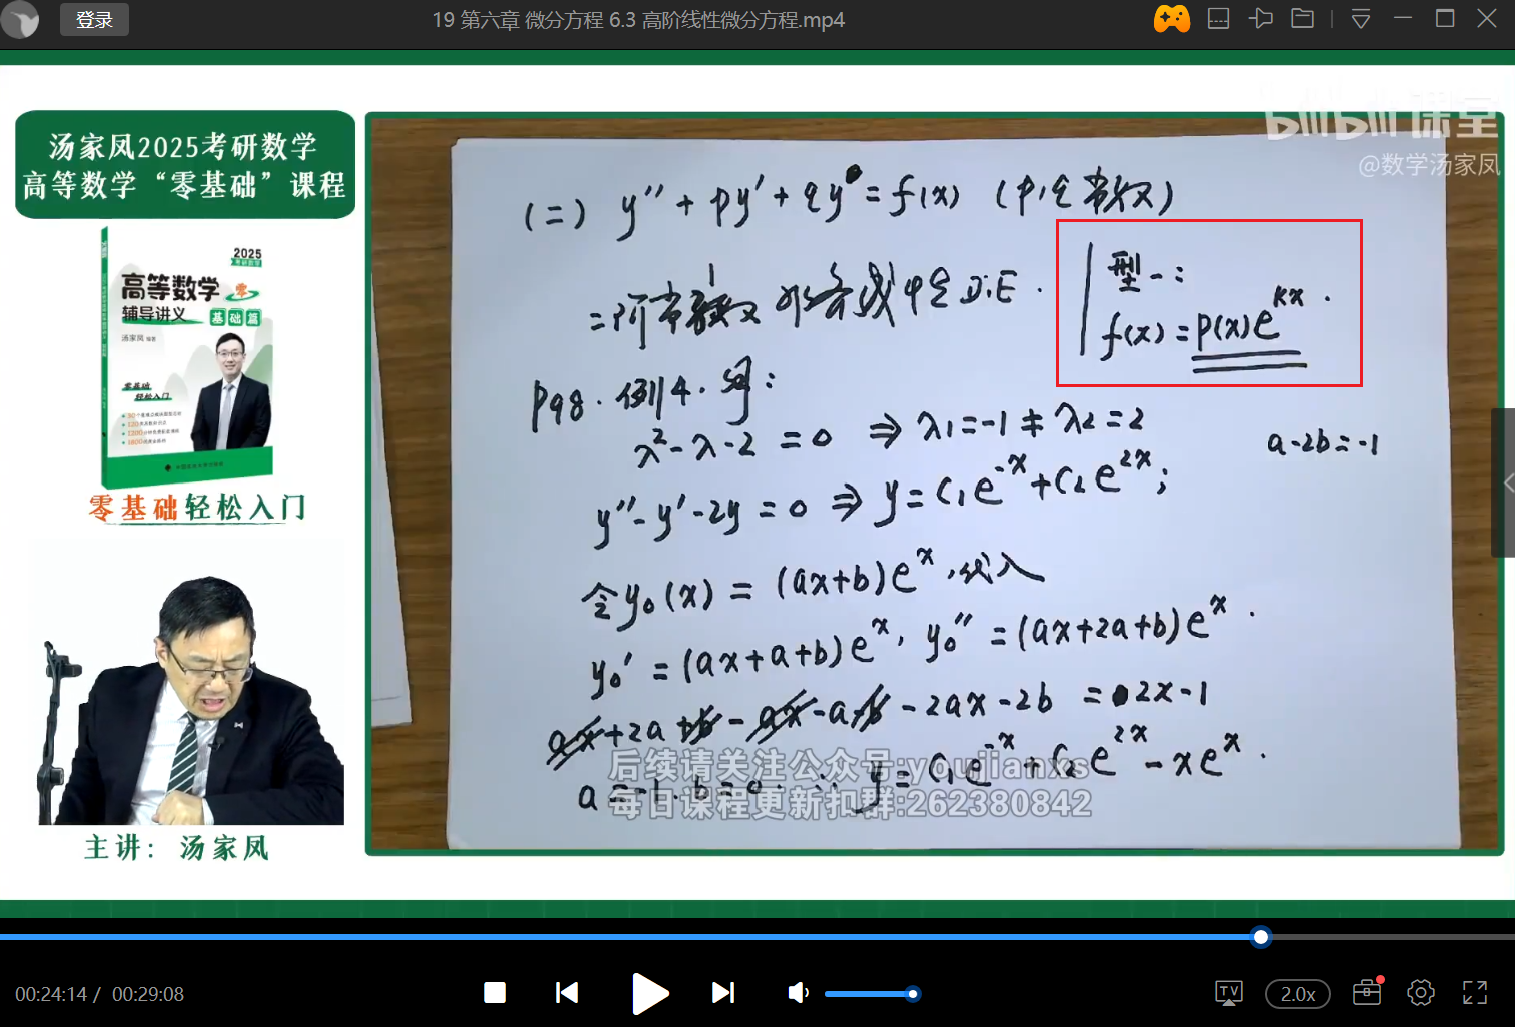 登录
19 第六章 微分方程 6.3 高阶线性微分方程.mp4
汤家凤2025考研数学
高等数学“零基础”课程
2025
高等数学 零
辅导讲义 基础篇
汤家凤
零基础
轻松入门
零基础轻松入门
主讲：汤家凤
bilibili课堂
@数学汤家凤
(二) y''+py'+qy=f(x) (p,q常数)
二阶常系数非齐线性D.E.
型一:
f(x)=P(x)e^{kx}.
P98. 例4. 解:
λ²-λ-2=0 ⇒ λ1=-1≠λ2=2
a-2b=-1
y''-y'-2y=0 ⇒ y=C₁e^{-x}+C₂e^{2x};
令y₀(x)=(ax+b)e^x,代入
y₀'=(ax+a+b)e^x, y₀''=(ax+2a+b)e^x.
ax+2a+b-ax-a-b-2ax-2b=2x-1
a=-1.b=0. ∴ y=C₁e^{-x}+C₂e^{2x}-xe^x.
后续请关注公众号:youjianxs
每日课程更新扣群:262380842
00:24:14 / 00:29:08
TV
2.0x